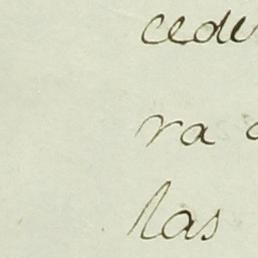 cede
ra
las